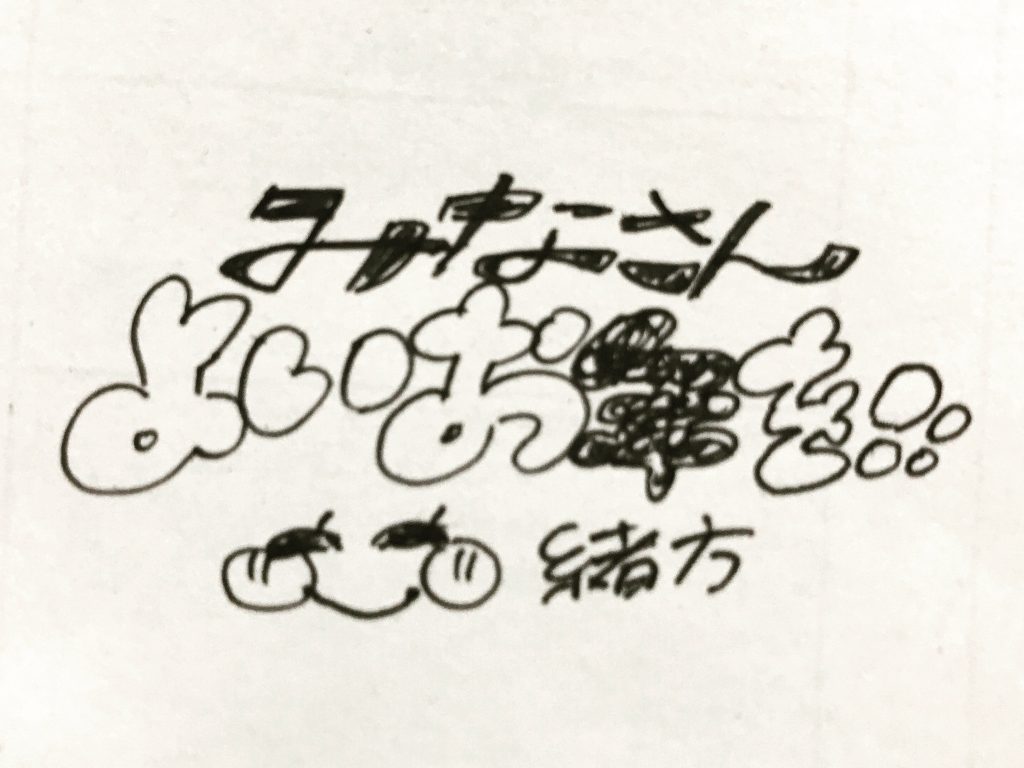 みなこさん
よいお年を!!
緒方